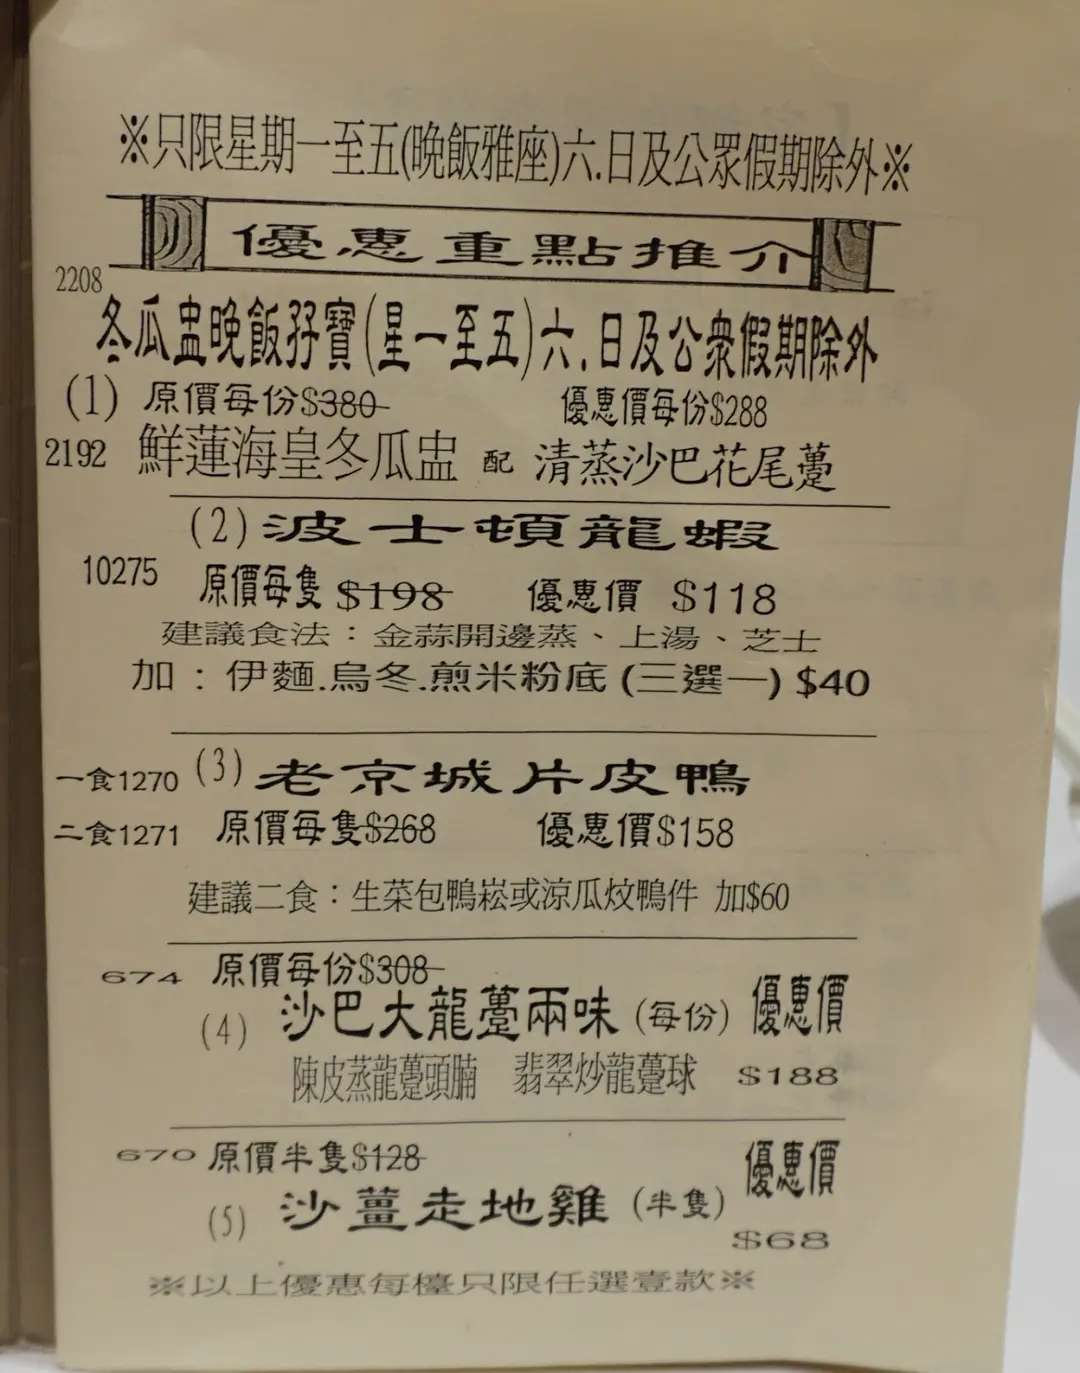 ※只限星期一至五(晚飯雅座)六.日及公眾假期除外※
優惠重點推介
2208
冬瓜盅晚飯孖寶(星一至五)六.日及公衆假期除外
(1) 原價每份$380 優惠價每份$288
2192 鮮蓮海皇冬瓜盅 配 清蒸沙巴花尾躉
(2)波士頓龍蝦
10275 原價每隻 $198 優惠價 $118
建議食法：金蒜開邊蒸、上湯、芝士
加：伊麵.烏冬.煎米粉底(三選一) $40
一食1270 (3)老京城片皮鴨
二食1271 原價每隻$268 優惠價$158
建議二食：生菜包鴨崧或涼瓜炆鴨件 加$60
674 原價每份$308
(4) 沙巴大龍躉兩味(每份) 優惠價
陳皮蒸龍躉頭腩 翡翠炒龍躉球 $188
670 原價半隻$128 優惠價
(5) 沙薑走地雞(半隻)
$68
※以上優惠每檯只限任選壹款※